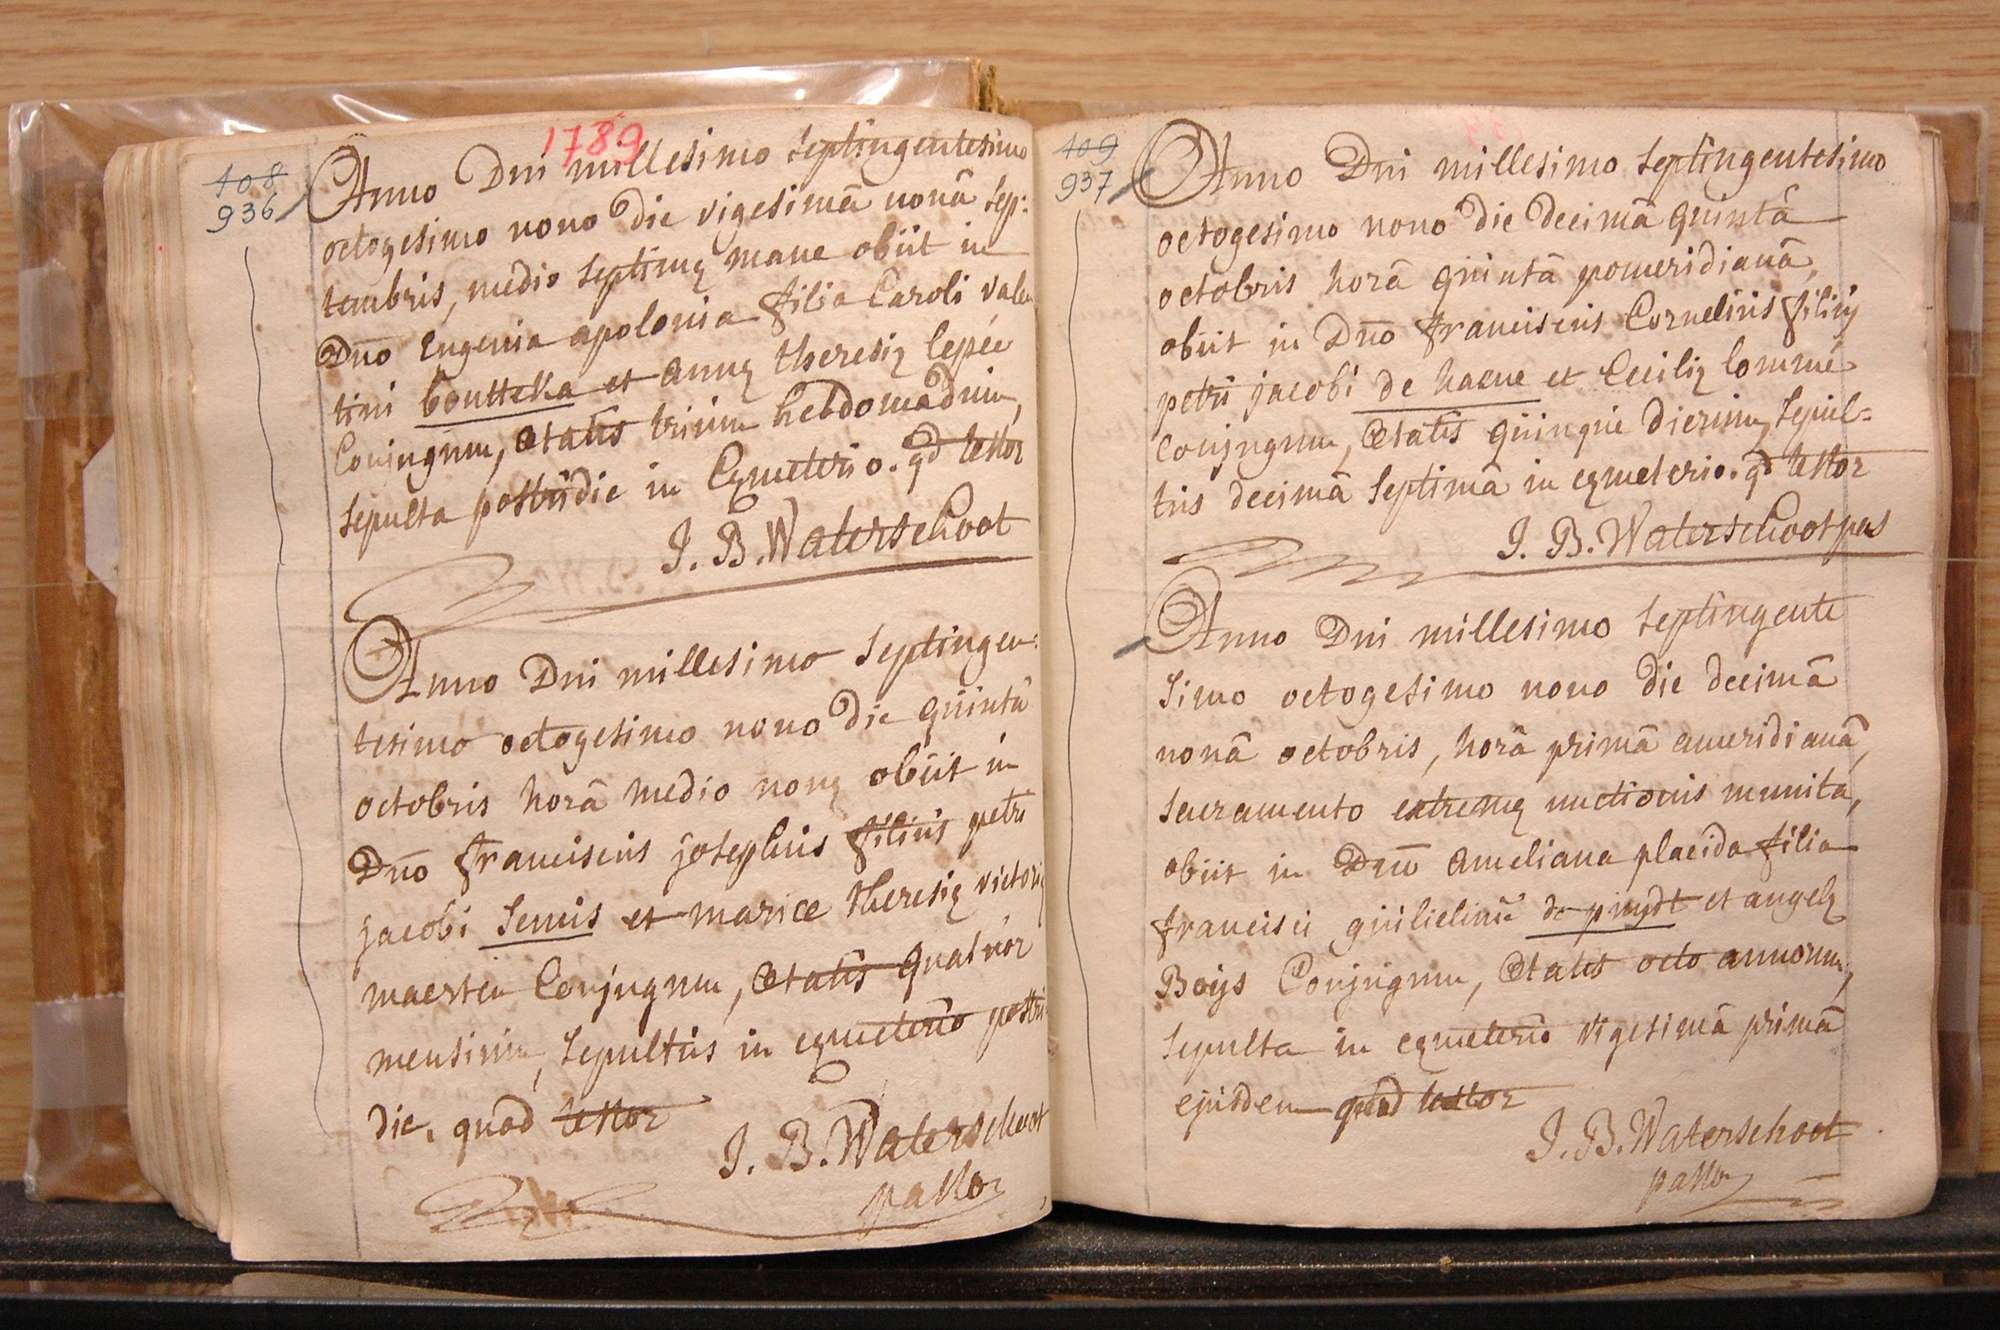 1789
408
936
Anno Dni millesimo Septingentesimo
octogesimo nono die vigesimā nonā Sep:
tembris, medio septimę mane obiit in
Dño Eugenia apolonia filia Caroli valen
tini bouttcka et annę theresię lepée
Conjugum, Ætatis trium hebdomadum,
sepulta postridie in Cęmeterio. qd testor
J. B. Waterschoot
Anno Dni millesimo Septingen:
tesimo octogesimo nono die quintā
octobris horā medio nonę obiit in
Dño franciscus josephus filius petri
jacobi Senus et mariæ theresię victorię
maerten Conjugum, Ætatis quatuor
mensium, sepultus in cęmeterio postri
die. quod testor
J. B. Waterschoot
pastor
409
937
Anno Dni millesimo septingentesimo
octogesimo nono die decimā quintā
octobris horā quintā pomeridianā,
obiit in Dño franciscus Cornelius filius
petri jacobi de haene et Cecilię lommé
conjugum, Ætatis quinque dierum, sepul=
tus decimā septimā in cęmeterio. qd testor
J. B. Waterschoot pas
Anno Dni millesimo septingente
simo octogesimo nono die decimā
nonā octobris, horā primā ameridianā,
sacramento extremę unctionis munita,
obiit in Dño ameliana placida filia
francisci guilielmi de pruydt et angelę
Boijs Conjugum, Ætatis octo annorum,
sepulta in cęmeterio vigesimā primā
ejusdem quod testor
J. B. Waterschoot
pastor